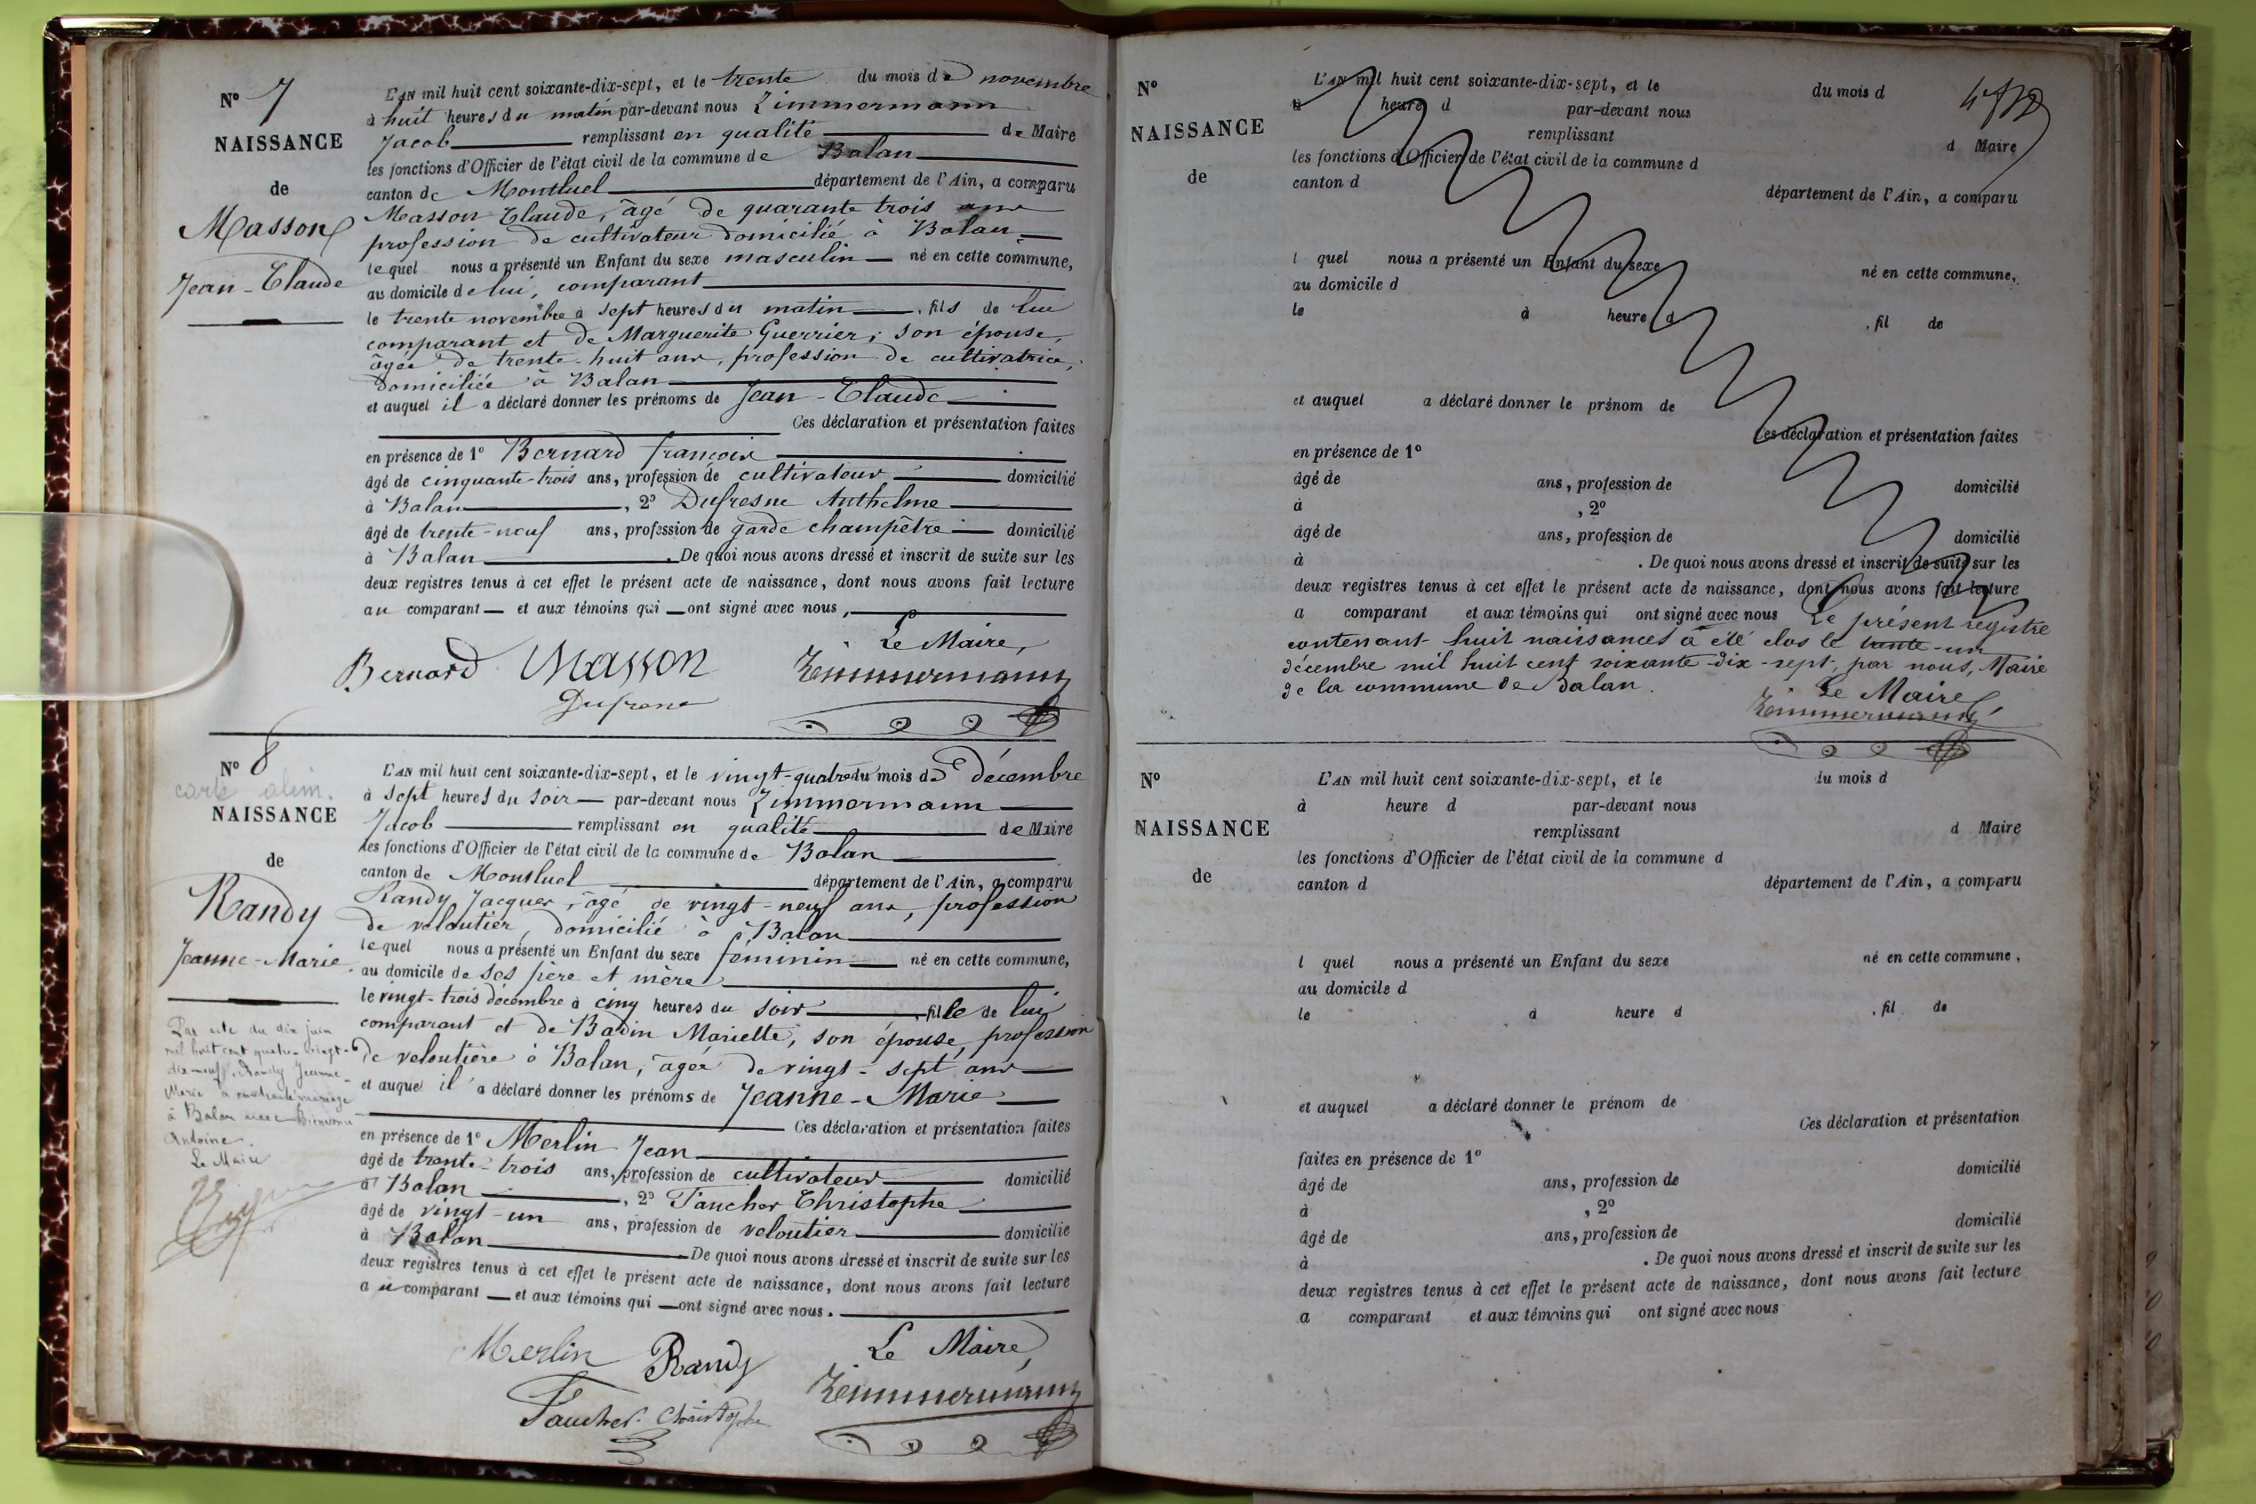 N° 7
NAISSANCE
de
Masson
Jean-Claude
L'AN mil huit cent soixante-dix-sept, et le trente du mois de novembre
à huit heures du matin par-devant nous Zimmermann
Jacob remplissant en qualité de Maire
les fonctions d'Officier de l'état civil de la commune de Balan
canton de Montluel département de l'Ain, a comparu
Masson Claude, âgé de quarante trois ans
profession de cultivateur domicilié à Balan
lequel nous a présenté un Enfant du sexe masculin né en cette commune,
au domicile de lui, comparant
le trente novembre à sept heures du matin, fils de lui
comparant et de Marguerite Guerrier, son épouse,
âgée de trente-huit ans, profession de cultivatrice,
domiciliée à Balan
et auquel il a déclaré donner les prénoms de Jean-Claude
Ces déclaration et présentation faites
en présence de 1° Bernard françois
âgé de cinquante-trois ans, profession de cultivateur domicilié
à Balan, 2° Dufresne Anthelme
âgé de trente-neuf ans, profession de garde champêtre domicilié
à Balan. De quoi nous avons dressé et inscrit de suite sur les
deux registres tenus à cet effet le présent acte de naissance, dont nous avons fait lecture
au comparant et aux témoins qui ont signé avec nous,
Le Maire,
Bernard Masson Zimmermann
Dufrene
N° 8
carte alim.
NAISSANCE
de
Randy
Jeanne-Marie
L'AN mil huit cent soixante-dix-sept, et le vingt-quatre du mois de décembre
à sept heures du soir par-devant nous Zimmermann
Jacob remplissant en qualité de Maire
les fonctions d'Officier de l'état civil de la commune de Balan
canton de Montluel département de l'Ain, a comparu
Randy Jacques, âgé de vingt-neuf ans, profession
de veloutier, domicilié à Balan
lequel nous a présenté un Enfant du sexe féminin né en cette commune,
au domicile de ses père et mère
le vingt-trois décembre à cinq heures du soir, fille de lui
comparant et de Badin Mariette, son épouse, profession
de veloutière à Balan, âgée de vingt-sept ans
et auquel il a déclaré donner les prénoms de Jeanne-Marie
Ces déclaration et présentation faites
en présence de 1° Merlin Jean
âgé de trente-trois ans, profession de cultivateur domicilié
à Balan, 2° Faucher Christophe
âgé de vingt-un ans, profession de veloutier domicilié
à Balan De quoi nous avons dressé et inscrit de suite sur les
deux registres tenus à cet effet le présent acte de naissance, dont nous avons fait lecture
au comparant et aux témoins qui ont signé avec nous.
Par acte du dix juin
mil huit cent quatre-vingt-
dix-neuf, Randy Jeanne-
Marie a contracté mariage
à Balan avec Bienvenu
Antoine.
Le Maire
Le Maire,
Merlin Randy Zimmermann
Faucher Christophe
N°
NAISSANCE
de
L'AN mil huit cent soixante-dix-sept, et le du mois d
à heure d par-devant nous
remplissant d Maire
les fonctions d'Officier de l'état civil de la commune d
canton d département de l'Ain, a comparu
l quel nous a présenté un Enfant du sexe né en cette commune,
au domicile d
le à heure d , fil de
et auquel a déclaré donner le prénom de
Ces déclaration et présentation faites
en présence de 1°
âgé de ans, profession de domicilié
à , 2°
âgé de ans, profession de domicilié
à . De quoi nous avons dressé et inscrit de suite sur les
deux registres tenus à cet effet le présent acte de naissance, dont nous avons fait lecture
a comparant et aux témoins qui ont signé avec nous
Le présent registre
contenant huit naissances a été clos le trente-un
décembre mil huit cent soixante-dix-sept, par nous, Maire
de la commune de Balan.
Le Maire,
Zimmermann
N°
NAISSANCE
de
L'AN mil huit cent soixante-dix-sept, et le du mois d
à heure d par-devant nous
remplissant d Maire
les fonctions d'Officier de l'état civil de la commune d
canton d département de l'Ain, a comparu
l quel nous a présenté un Enfant du sexe né en cette commune,
au domicile d
le à heure d , fil de
et auquel a déclaré donner le prénom de
Ces déclaration et présentation
faites en présence de 1°
âgé de ans, profession de domicilié
à , 2°
âgé de ans, profession de domicilié
à . De quoi nous avons dressé et inscrit de suite sur les
deux registres tenus à cet effet le présent acte de naissance, dont nous avons fait lecture
a comparant et aux témoins qui ont signé avec nous